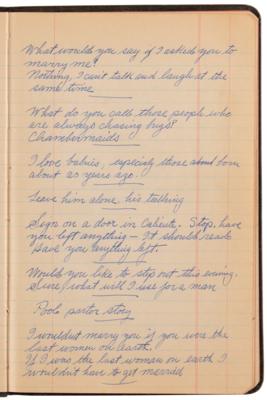 What would you say if I asked you to
marry me?
Nothing, I can't talk and laugh at the
same time
What do you call those people who
are always chasing bugs?
Chambermaids
I love babies, especialy those about born
about 20 years ago.
Leave him alone, his talking
Sign on a door in Caliente. Stop, have
you left anything - It should read
Have you anything left.
Would you like to step out this evening.
Sure, what will I use for a man
Pool parlor story
I wouldnt marry you if you were the
last women on earth.
If I was the last woman on earth I
wouldnt have to get married